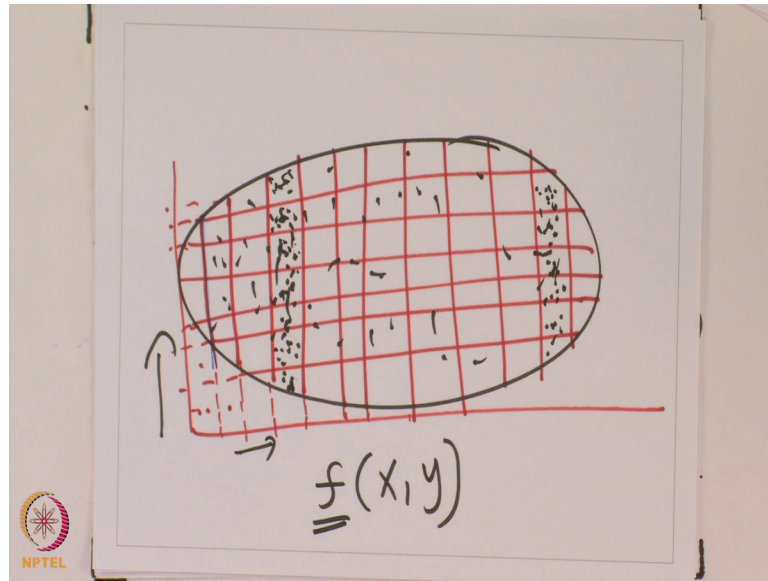 f(x,y)
NPTEL